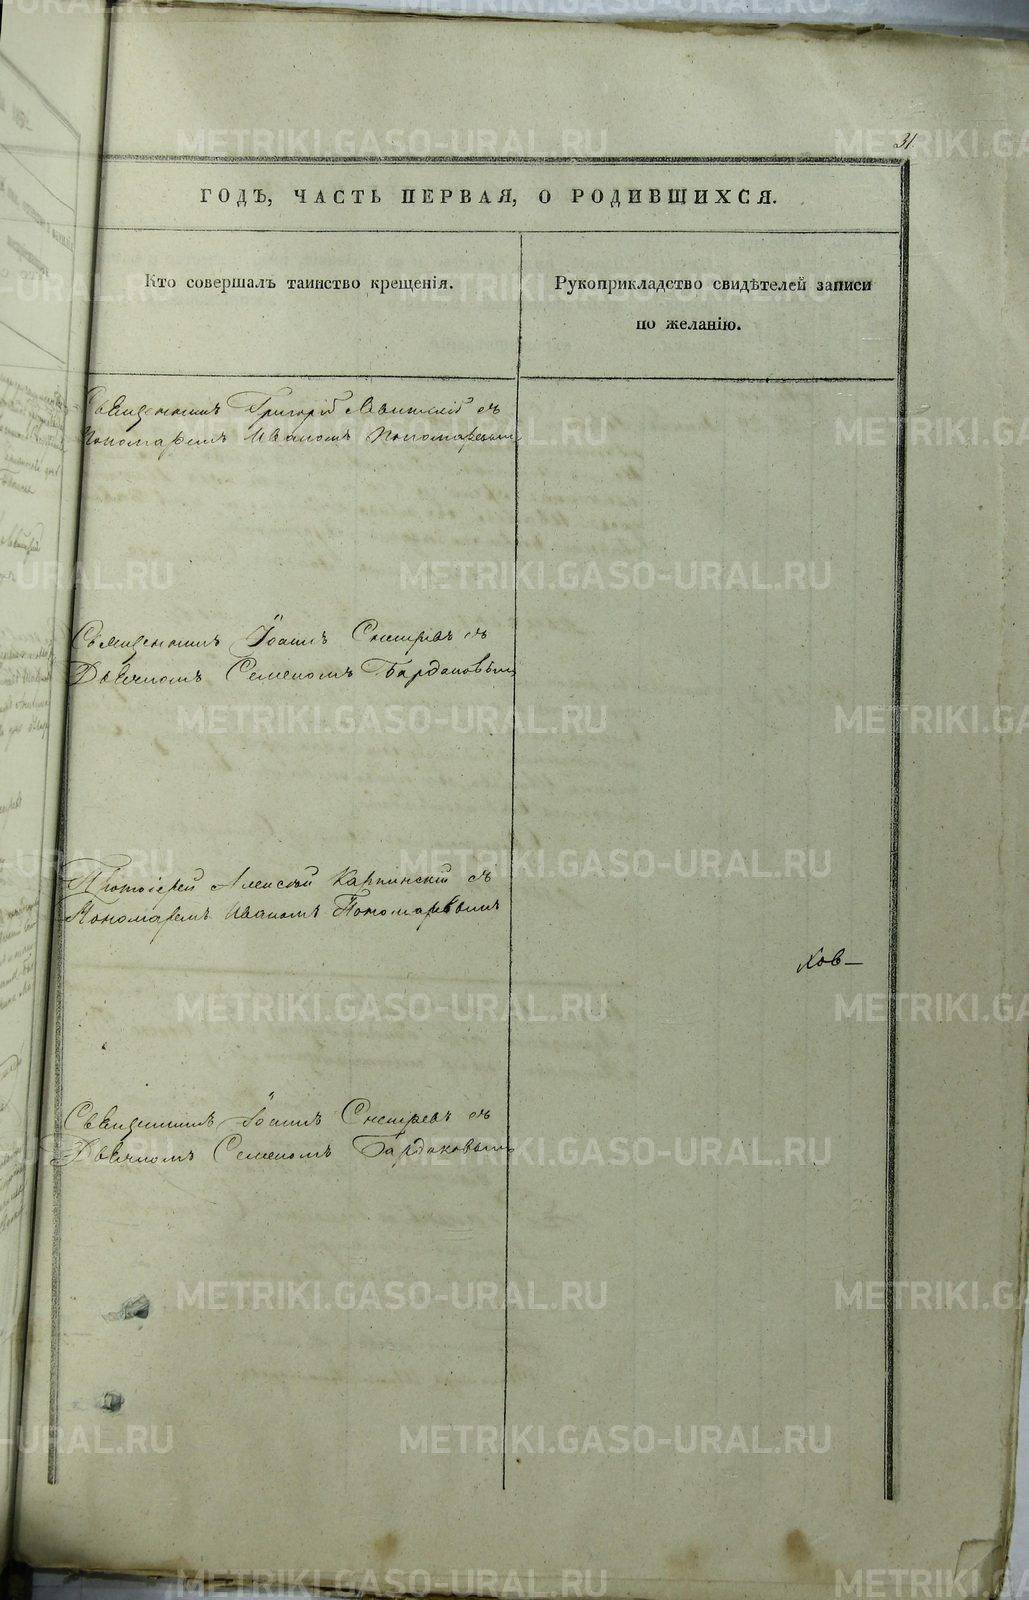 31.
ГОДЪ, ЧАСТЬ ПЕРВАЯ, О РОДИВШИХСЯ.
Кто совершалъ таинство крещенія.
Рукоприкладство свидѣтелей записи
по желанію.
Священникъ Григорій съ
Пономаремъ Иваномъ Пономаревымъ
Священникъ Іоаннъ съ
Дьячкомъ Семеномъ
Протоіерей Алексѣй Карпинскій съ
Пономаремъ Иваномъ Пономаревымъ
Священникъ Іоаннъ съ
Дьячкомъ Семеномъ
METRIKI.GASO-URAL.RU